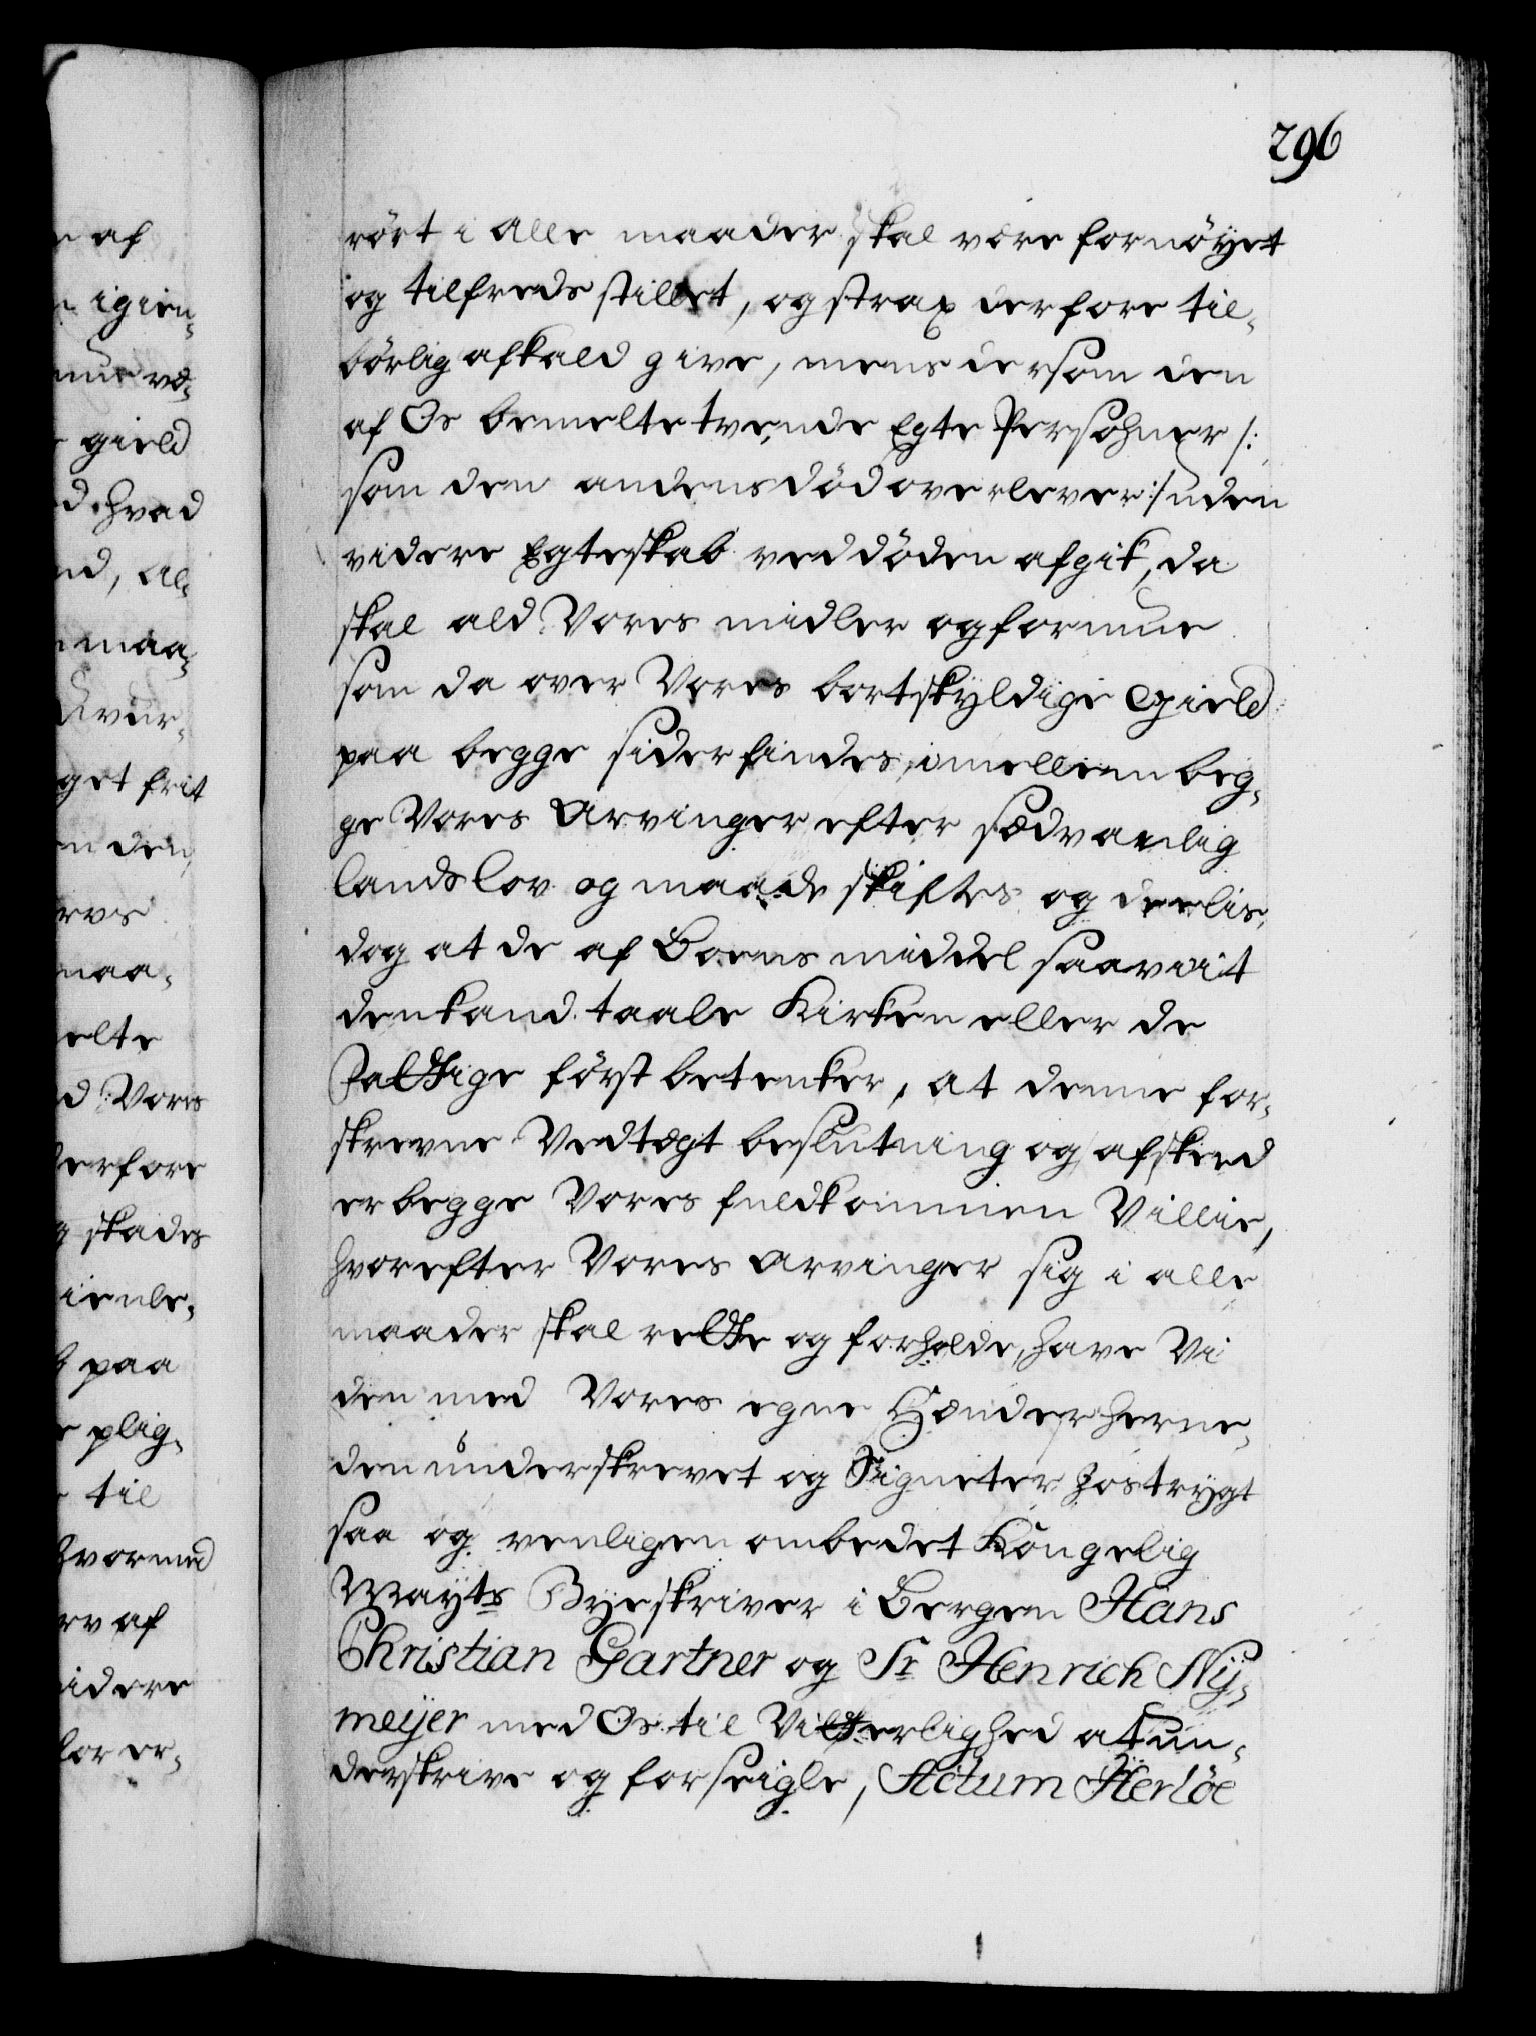 296
rört i alle maader skal være fornöyet
og tilfreds stillet, og strax derfore til-
börlig afkald give, mens dersom den
af Os bemelte tvende Egte Persohner /:
som den andens död overlever :/ uden
videre Egteskab ved döden afgik, da
skal ald Vores midler og formue
som da over Vores bortskyldige Gield
paa begge sider findes, imellem beg-
ge Vores Arvinger efter sædvanlig
lands lov og maade skiftes og deelis,
dog at de af Boens middel saavit
den kand taale Kirken eller de
Fattige först betenker, at denne for-
skrevne Vedtægt beslutning og afskeed
er begge Vores fuldkommen Villie,
hvorefter Vores Arvinger sig i alle
maader skal rette og forholde, have Vi
den med Vores egne Hænder herne-
den underskrevet og Signeter hostrygt
saa og venligen ombedet Kongelig
Mayts Byeskriver i Bergen Hans
Christian Gartner og Sr Henrich Ny-
meyer med Os til Vitterlighed at un-
derskrive og forseigle, Actum Herlöe
e af
igien-
mue væ-
gield
d. hvad
nd, al-
maa-
get frit
n den
maa-
elte
d Vores
derfore
g skades
b paa
plig-
til
hvormed
rv af
idere